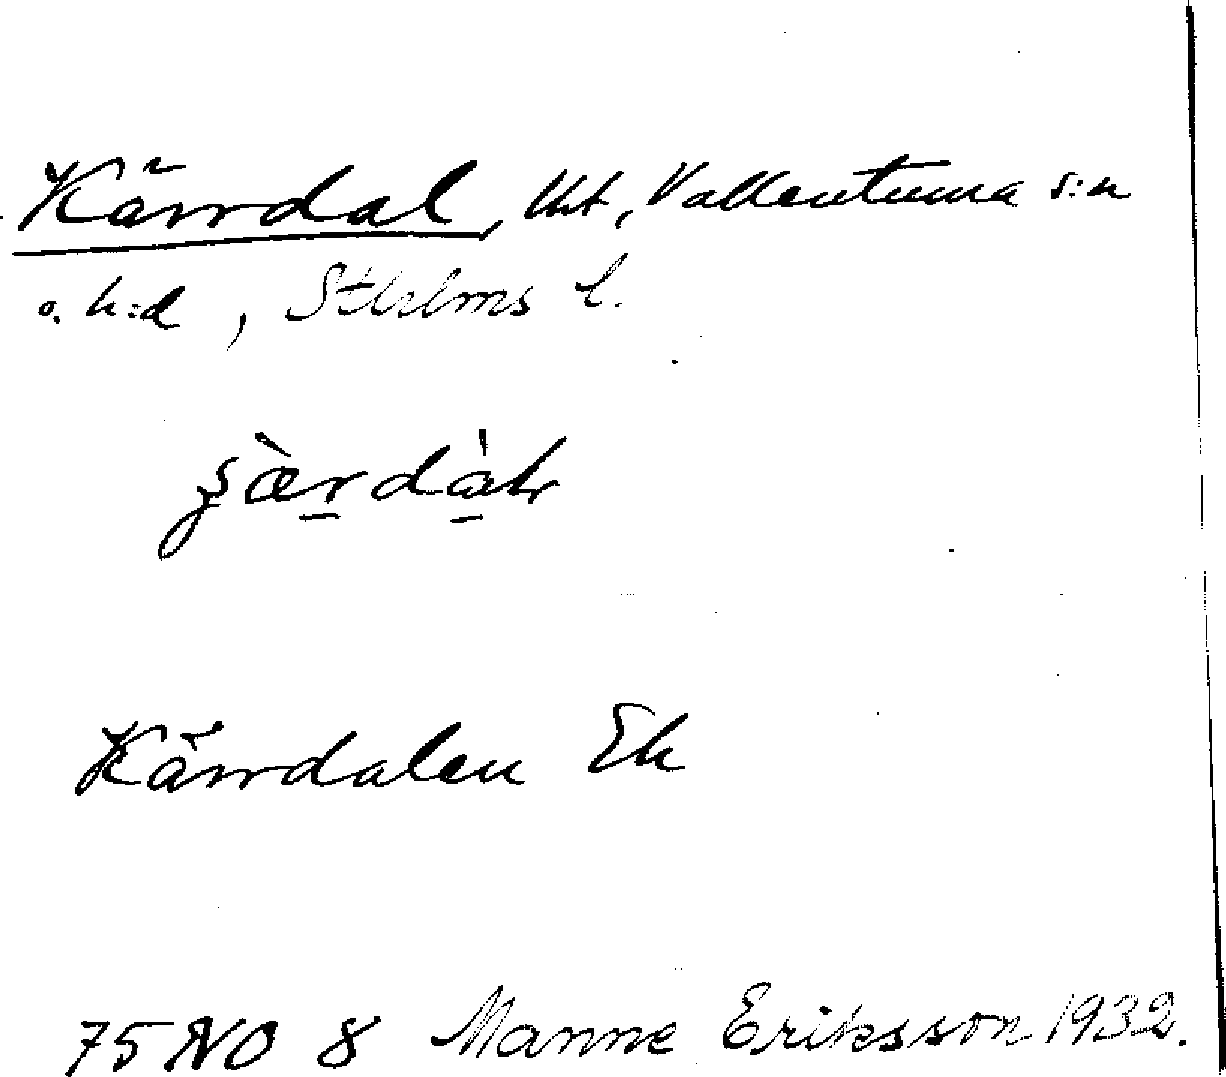 Kärrdal, tht, Vallentuna s:n
o. h:d, Sthlms l.
Kärrdalen Ek
75 NO 8 Manne Eriksson 1932.